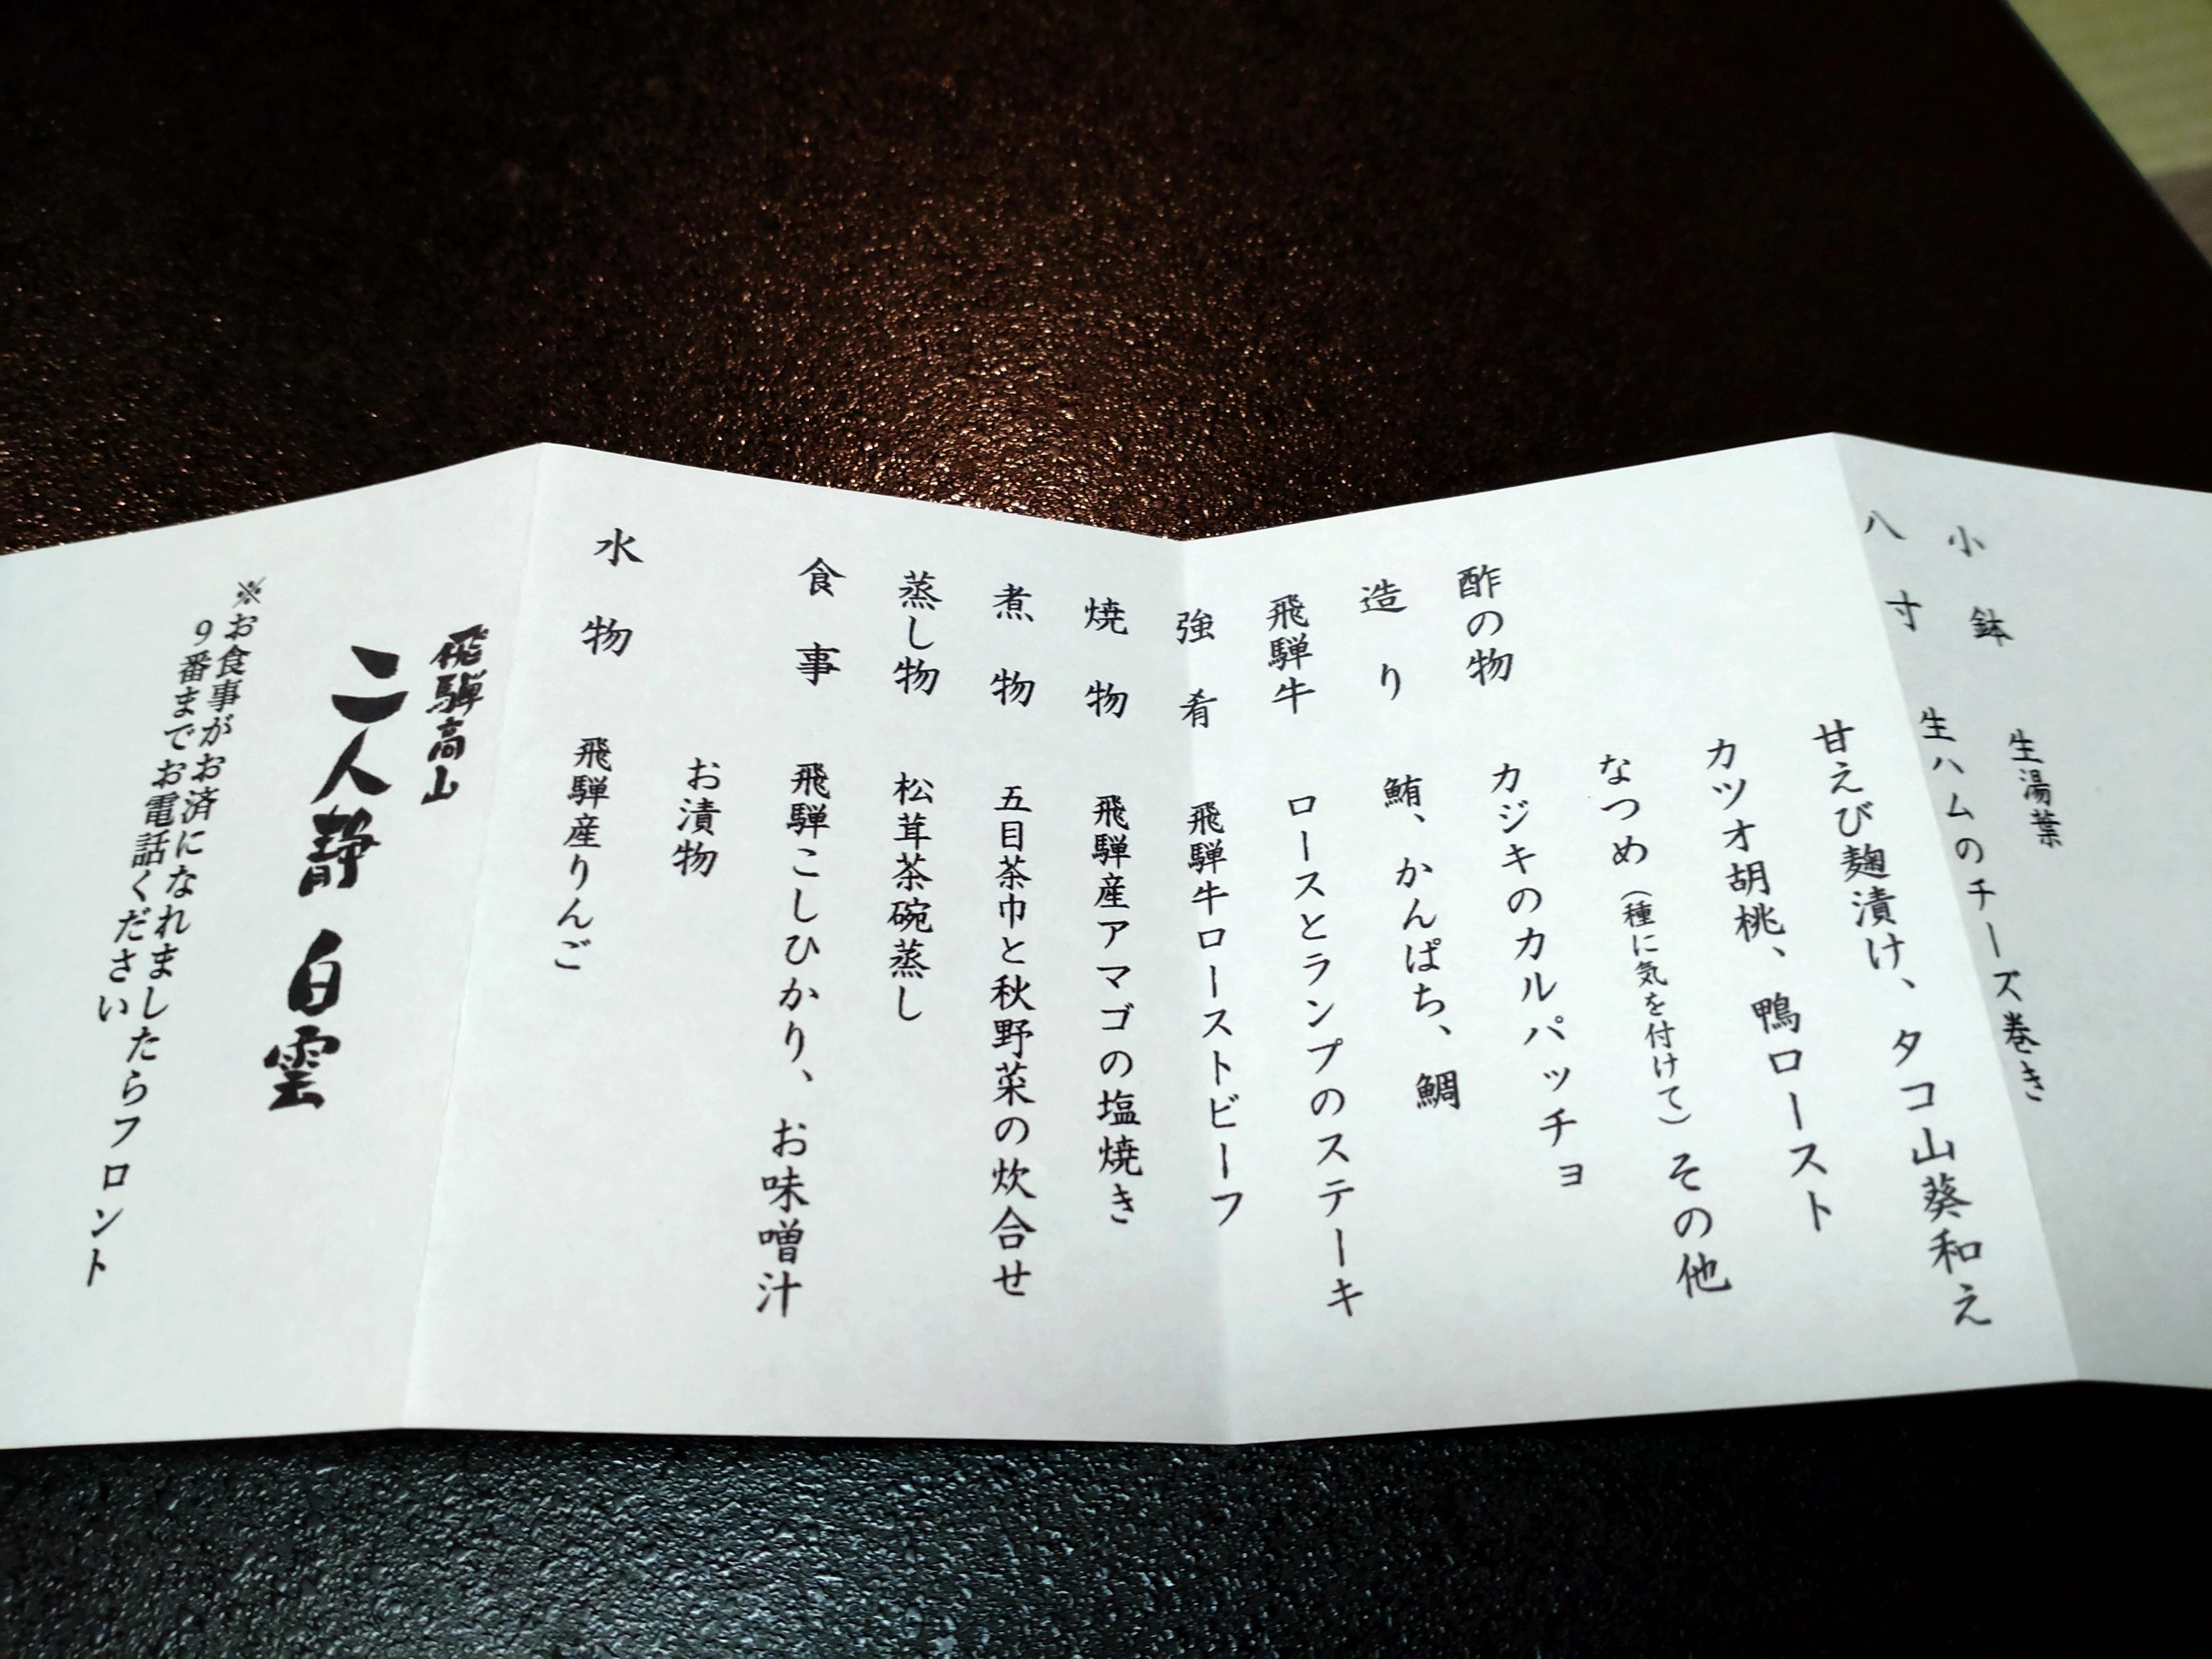 小鉢 生湯葉
八寸 生ハムのチーズ巻き
甘えび麹漬け、タコ山葵和え
カツオ胡桃、鴨ロースト
なつめ(種に気を付けて)その他
酢の物 カジキのカルパッチョ
造り 鮪、かんぱち、鯛
飛騨牛 ロースとランプのステーキ
強肴 飛騨牛ローストビーフ
焼物 飛騨産アマゴの塩焼き
煮物 五目茶巾と秋野菜の炊合せ
蒸し物 松茸茶碗蒸し
食事 飛騨こしひかり、お味噌汁
お漬物
水物 飛騨産りんご
飛騨高山
二人静 白雲
※お食事がお済になれましたらフロント
9番までお電話ください